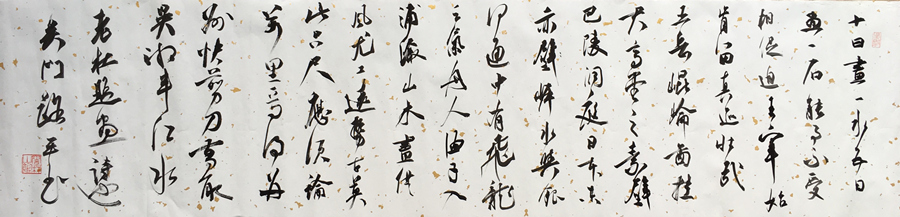 十日畫一水五日
畫一石能事不受
相促迫王宰始
肯留真迹壮哉
崐崘圖挂
君高堂之素壁
巴陵洞庭日本東
赤壁岸水與銀
河通中有飛龍
雲氣舟人漁子入
浦漵山木盡
風尤工遠勢古莫
比咫尺應須論
萬里焉得并
州快剪刀剪取
吴淞半江水
老杜題畫詩
吴門